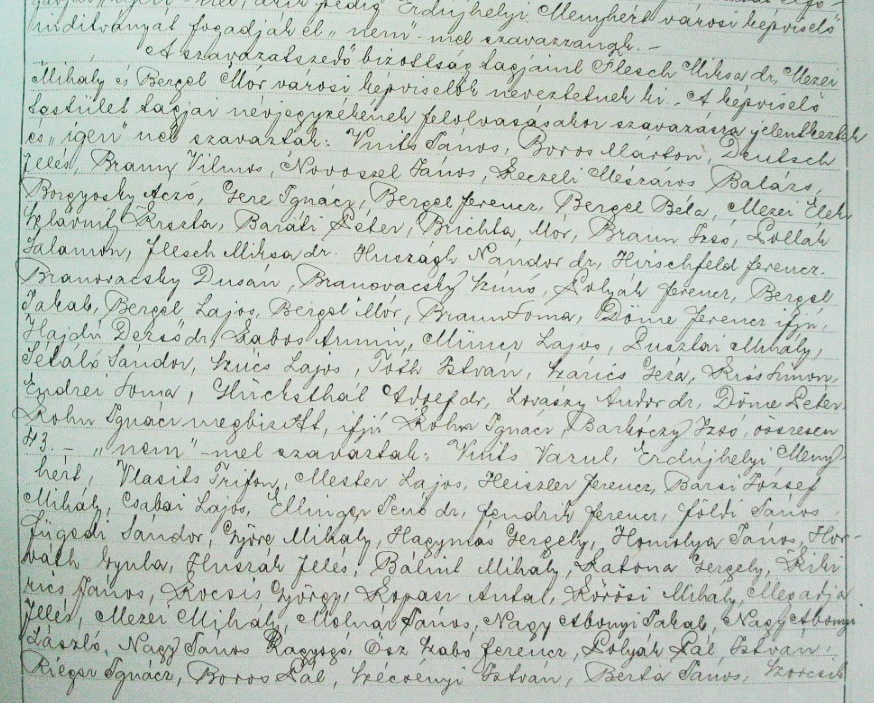 "nem"-mel, akik pedig Erdujhelyi Menyhért városi képviselő
indítványát fogadják el „nem"-mel szavazzanak. –
A szavazatszedő bizottság tagjaiul Flesch Miksa dr, Mezei
Mihály és Bergel Mór városi képviselők neveztetnek ki. – A képviselő
testület tagjai névjegyzékének felolvasásakor szavazásra jelentkeztek
és „igen" nel szavaztak: Vuits János, Boros Márton, Deutsch
Illés, Braun Vilmos, Novoszel János, Keczeli Mészáros Balázs,
Borgyosky Aczó, Gere Ignácz, Bergel Ferencz, Bergel Béla, Mezei Elek
Krszta, Baráti Péter, Brichta Mór, Braun Izsó, Pollák
Salamon, Flesch Miksa dr. Huczágh Nándor dr, Hirschfeld Ferencz.
Branovaczky Dusán, Branovaczky Szúnó, Polyák Ferencz, Bergel
Jakab, Bergel Lajos, Bergel Mór, Braun Soma, Döme Ferencz ifjú,
Hajdú Dezső dr, Labos Ármin, Müncz Lajos, Pusztai Mihály,
Sétáló Sándor, Szücs Lajos, Tóth István, Szárics Géza, Kiss Simon,
Endrei Soma, Glücksthál Adolf dr, Lovászy Andor dr, Döme Péter
Kohn Ignácz megbizott, ifjú Kohn Ignácz, Barkóczy Izsó, összesen
43. – „nem"-mel szavaztak: Vuits Vazul, Erdujhelyi Meny-
hért, Vlasits Trifon, Mester Lajos, Heiszler Ferencz, Bársi József
Mihály, Csabai Lajos, Ellinger Jenő dr, Fendrik Ferencz, Földi János
Fügedi Sándor, Györe Mihály, Hagymás Gergely, Homolya János, Hor-
váth Gyula, Huszák Illés, Bálint Mihály, Katona Gergely, Kiki
rics János, Kocsis György, Kopasz Antal, Kőrösi Mihály, Megadja
Illés, Mezei Mihály, Molnár János, Nagy Abonyi Jakab, Nagy Abonyi
László, Nagy János Ragyogó, Ősz Szabó Ferencz, Polyák Pál István,
Rieger Ignácz, Boros Pál, Szécsényi István, Berta János, Szorcsik